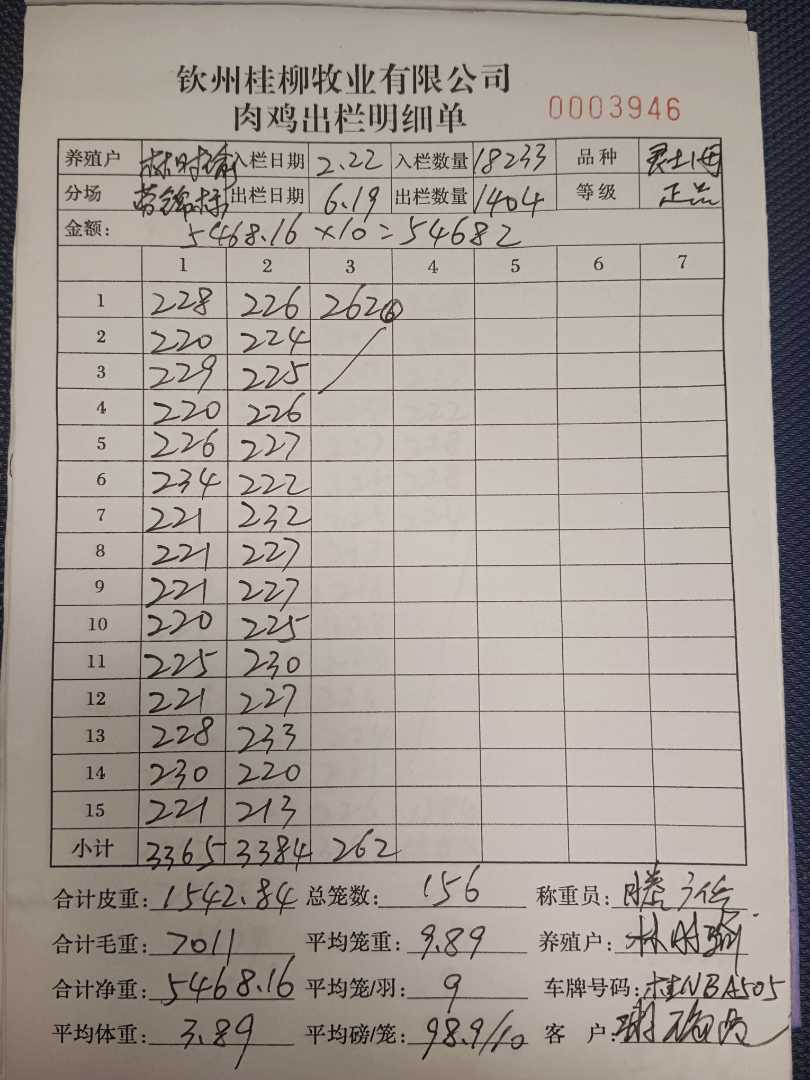 钦州桂柳牧业有限公司
肉鸡出栏明细单 0003946
养殖户 林时 入栏日期 2.22 入栏数量 18233 品种
分场 出栏日期 6.19 出栏数量 1404 等级 正品
金额: 5468.16×10=54682
1 2 3 4 5 6 7
1 228 226 262⑥
2 220 224
3 229 225
4 220 226
5 226 227
6 234 222
7 221 232
8 221 227
9 221 227
10 220 225
11 225 230
12 221 227
13 228 233
14 230 220
15 221 213
小计 3365 3384 262
合计皮重: 1542.84 总笼数: 156 称重员:
合计毛重: 7011 平均笼重: 9.89 养殖户: 林时
合计净重: 5468.16 平均笼/羽: 9 车牌号码: 桂NBA505
平均体重: 3.89 平均磅/笼: 98.9/10 客户: